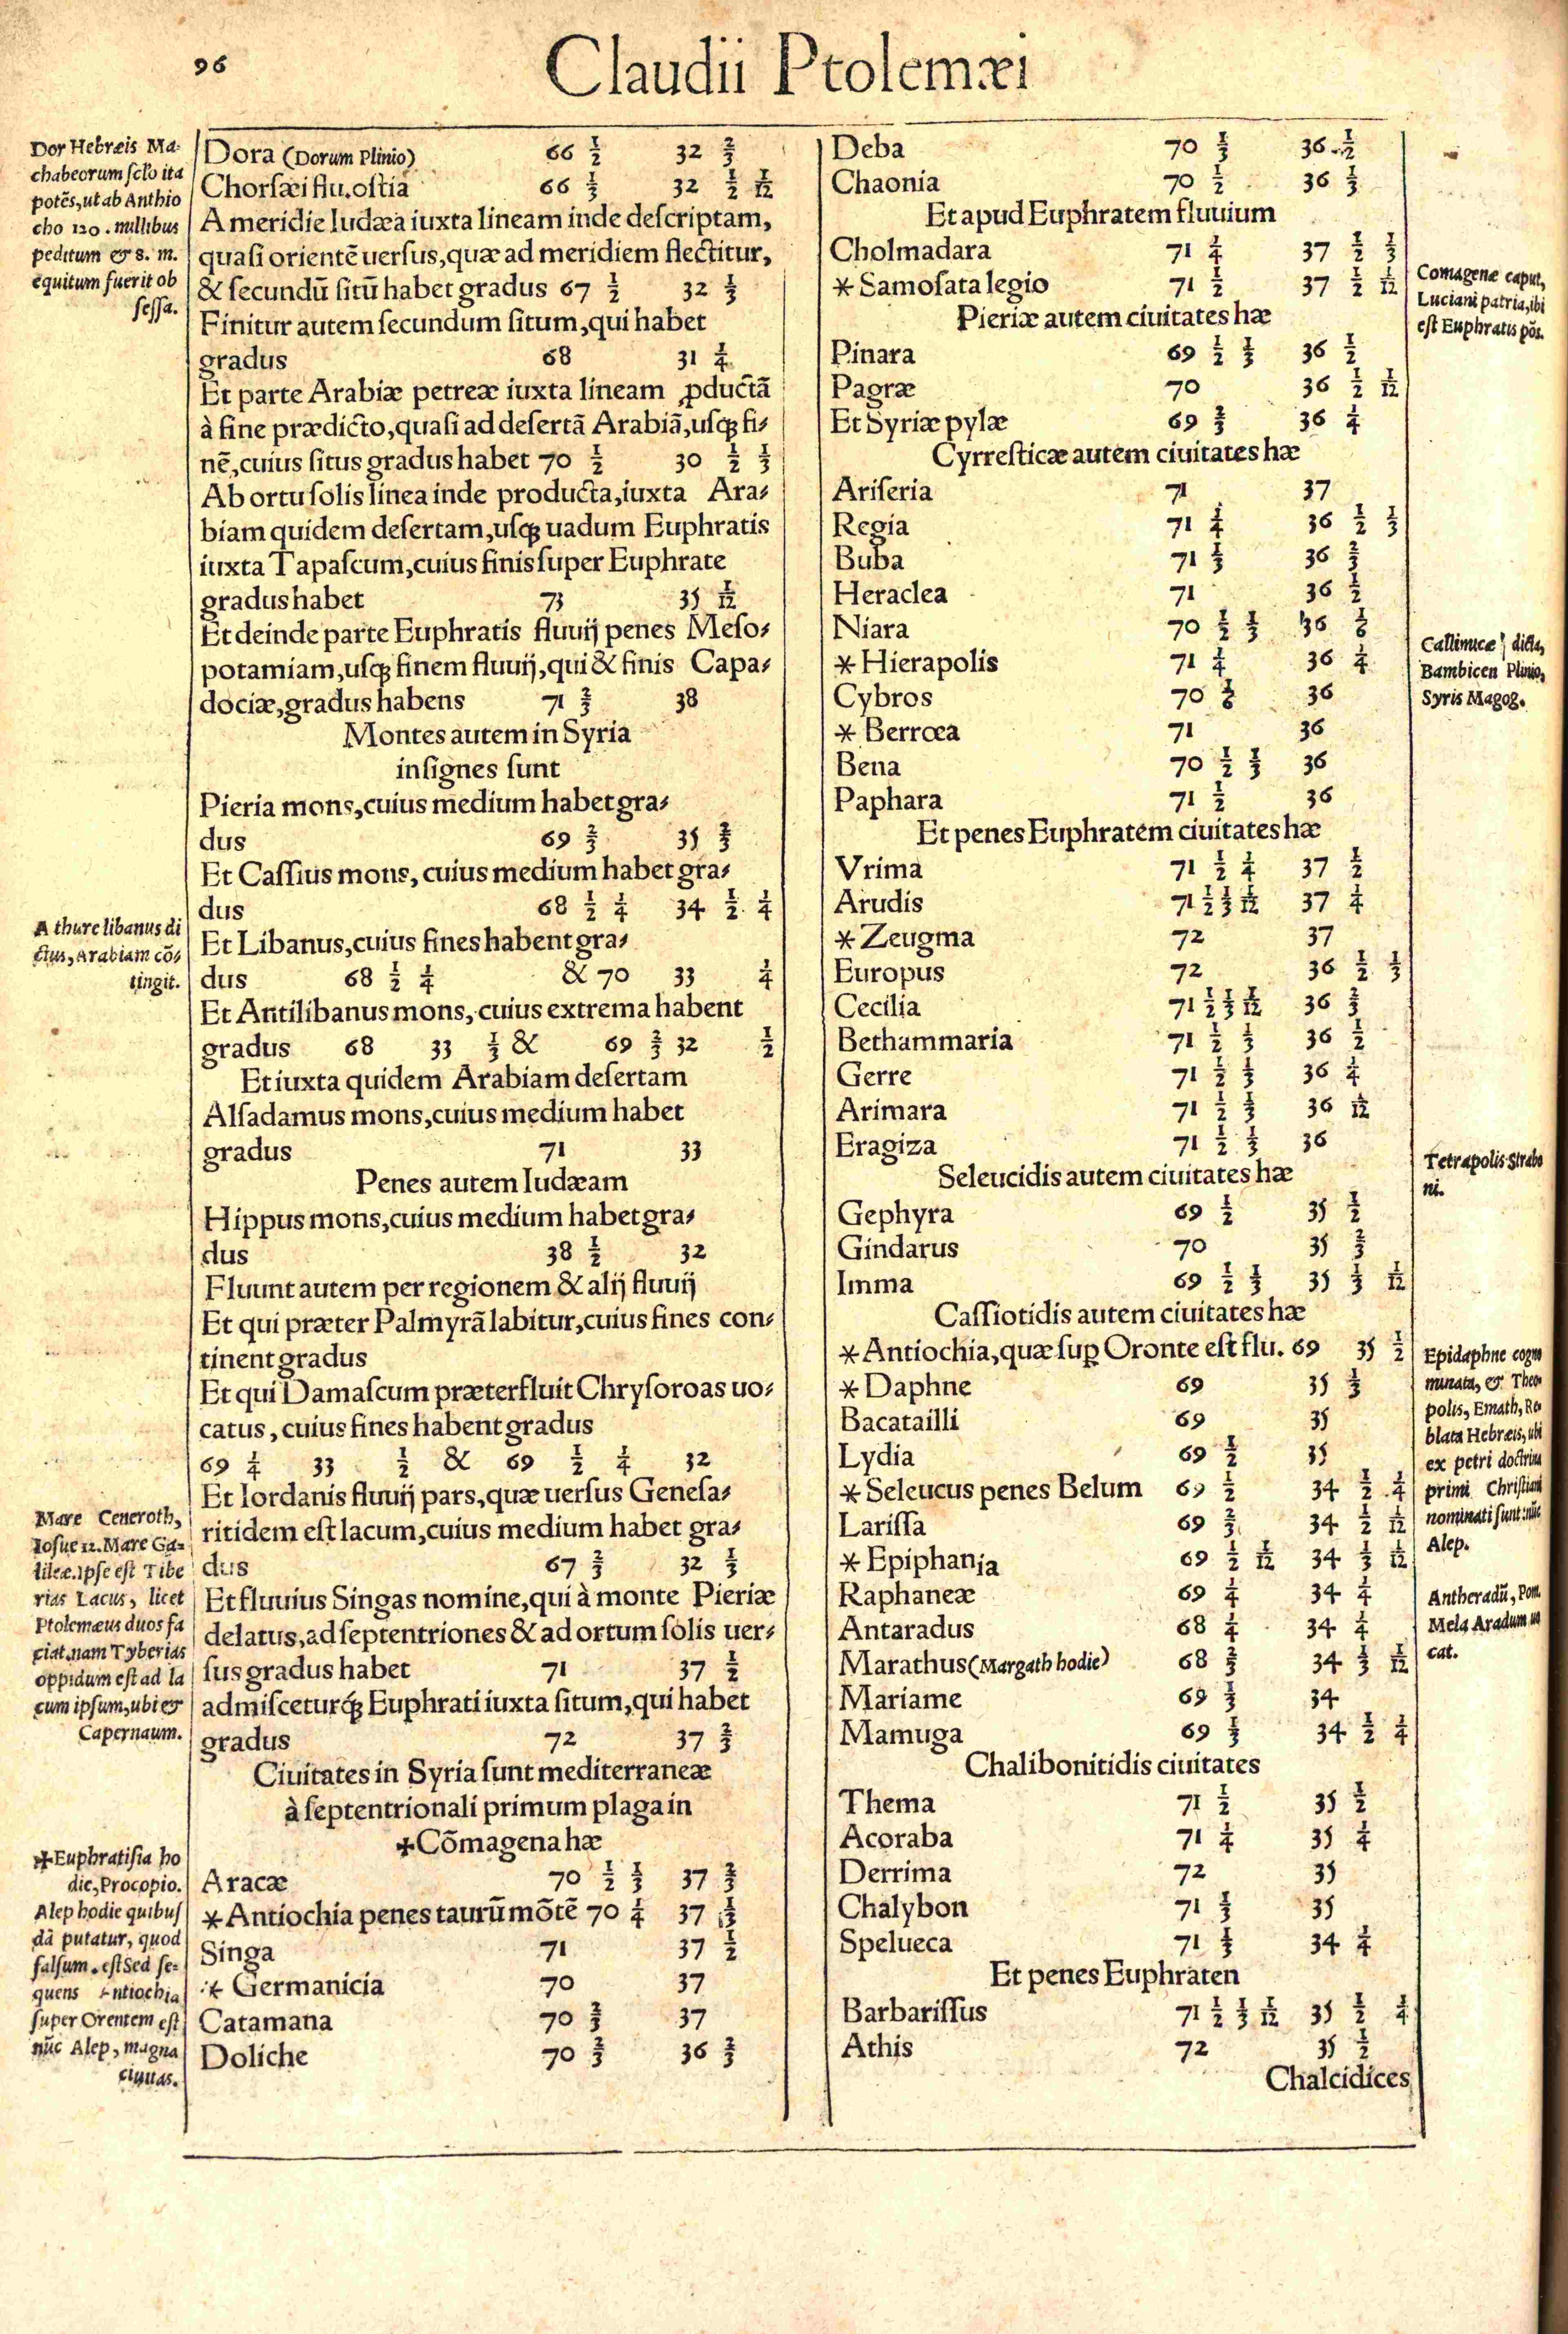 96
Claudii Ptolemæi
Dor Hebræis Ma-
chabeorum sclo ita
potẽs, ut ab Anthio
cho 120. millibus
peditum & 8. m.
equitum fuerit ob
sessa.
A thure libanus di
ctus, Arabiam cõ-
tingit.
Mare Ceneroth,
Iosue 12. Mare Ga-
lileæ. Ipse est Tibe
rias Lacus, licet
Ptolemæus duos fa
ciat, nam Tyberias
oppidum est ad la
cum ipsum, ubi &
Capernaum.
✢Euphratisia ho
die, Procopio.
Alep hodie quibus
dã putatur, quod
falsum. est Sed se-
quens Antiochia
super Orentem est
nũc Alep, magna
ciuitas.
Dora (Dorum Plinio) 66 1/2 32 2/3
Chorsæi flu. ostia 66 1/3 32 1/2 1/12
A meridie Iudæa iuxta lineam inde descriptam,
quasi orientẽ uersus, quæ ad meridiem flectitur,
& secundũ sitũ habet gradus 67 1/2 32 1/3
Finitur autem secundum situm, qui habet
gradus 68 31 1/4
Et parte Arabiæ petreæ iuxta lineam ꝓductã
à fine prædicto, quasi ad desertã Arabiã, usqꝫ fi-
nẽ, cuius situs gradus habet 70 1/2 30 1/2 1/3
Ab ortu solis linea inde producta, iuxta Ara-
biam quidem desertam, usqꝫ uadum Euphratis
iuxta Tapascum, cuius finis super Euphrate
gradus habet 73 35 1/12
Et deinde parte Euphratis fluuij penes Meso-
potamiam, usqꝫ finem fluuij, qui & finis Capa-
dociæ, gradus habens 71 2/3 38
Montes autem in Syria
insignes sunt
Pieria mons, cuius medium habet gra-
dus 69 2/3 35 2/3
Et Cassius mons, cuius medium habet gra-
dus 68 1/2 1/4 34 1/2 1/4
Et Libanus, cuius fines habent gra-
dus 68 1/2 1/4 & 70 33 1/4
Et Antilibanus mons, cuius extrema habent
gradus 68 33 1/3 & 69 2/3 32 1/2
Et iuxta quidem Arabiam desertam
Alsadamus mons, cuius medium habet
gradus 71 33
Penes autem Iudæam
Hippus mons, cuius medium habet gra-
dus 38 1/2 32
Fluunt autem per regionem & alij fluuij
Et qui præter Palmyrã labitur, cuius fines con-
tinent gradus
Et qui Damascum præterfluit Chrysoroas uo-
catus, cuius fines habent gradus
69 1/4 33 1/2 & 69 1/2 1/4 32
Et Iordanis fluuij pars, quæ uersus Genesa-
ritidem est lacum, cuius medium habet gra-
dus 67 2/3 32 1/3
Et fluuius Singas nomine, qui à monte Pieriæ
delatus, ad septentriones & ad ortum solis uer-
sus gradus habet 71 37 1/2
admisceturqꝫ Euphrati iuxta situm, qui habet
gradus 72 37 2/3
Ciuitates in Syria sunt mediterraneæ
à septentrionali primum plaga in
✢Cõmagena hæ
Aracæ 70 1/2 1/3 37 2/3
*Antiochia penes taurũ mõtẽ 70 1/4 37 1/3
Singa 71 37 1/2
* Germanicia 70 37
Catamana 70 2/3 37
Doliche 70 2/3 36 2/3
Deba 70 1/3 36 1/2
Chaonia 70 1/2 36 1/3
Et apud Euphratem fluuium
Cholmadara 71 1/4 37 1/2 1/3
*Samosata legio 71 1/2 37 1/2 1/12
Pieriæ autem ciuitates hæ
Pinara 69 1/2 1/3 36 1/2
Pagræ 70 36 1/2 1/12
Et Syriæ pylæ 69 2/3 36 1/4
Cyrresticæ autem ciuitates hæ
Ariseria 71 37
Regia 71 1/4 36 1/2 1/3
Buba 71 1/3 36 2/3
Heraclea 71 36 1/2
Niara 70 1/2 1/3 36 1/6
*Hierapolis 71 1/4 36 1/4
Cybros 70 1/6 36
* Berrœa 71 36
Bena 70 1/2 1/3 36
Paphara 71 1/2 36
Et penes Euphratem ciuitates hæ
Vrima 71 1/2 1/4 37 1/2
Arudis 71 1/2 1/3 1/12 37 1/4
*Zeugma 72 37
Europus 72 36 1/2 1/3
Cecilia 71 1/2 1/3 1/12 36 2/3
Bethammaria 71 1/2 1/3 36 1/2
Gerre 71 1/2 1/3 36 1/4
Arimara 71 1/2 1/3 36 1/12
Eragiza 71 1/2 1/3 36
Seleucidis autem ciuitates hæ
Gephyra 69 1/2 35 1/2
Gindarus 70 35 2/3
Imma 69 1/2 1/3 35 1/3 1/12
Cassiotidis autem ciuitates hæ
*Antiochia, quæ sup Oronte est flu. 69 35 1/2
*Daphne 69 35 1/3
Bacatailli 69 35
Lydia 69 1/2 35
*Seleucus penes Belum 69 1/2 34 1/2 1/4
Larissa 69 2/3 34 1/2 1/12
*Epiphania 69 1/2 1/12 34 1/3 1/12
Raphaneæ 69 1/4 34 1/4
Antaradus 68 1/4 34 1/4
Marathus (Margath hodie) 68 2/3 34 1/3 1/12
Mariame 69 1/3 34
Mamuga 69 1/3 34 1/2 1/4
Chalibonitidis ciuitates
Thema 71 1/2 35 1/2
Acoraba 71 1/4 35 1/4
Derrima 72 35
Chalybon 71 1/3 35
Spelueca 71 1/3 34 1/4
Et penes Euphraten
Barbarissus 71 1/2 1/3 1/12 35 1/2 1/4
Athis 72 35 1/2
Chalcidices
Comagenæ caput,
Luciani patria, ibi
est Euphratis põs.
Callinicæ dicta,
Bambicen Plinio,
Syris Magog.
Tetrapolis Strabo
ni.
Epidaphne cogno
minata, & Theo
polis, Emath, Re
blata Hebræis, ubi
ex petri doctrina
primi Christiani
nominati sunt: nũc
Alep.
Antheradũ, Pom.
Mela Aradum uo
cat.